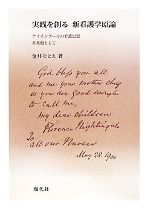 実践を創る 新看護学原論
ナイチンゲールの看護思想
を基盤として
金井一薫 著
God bless you all
and me your mother chief
as you are good enough
to call me,
my dear children
Florence Nightingale
To all our Nurses
May 28. 1900
現代社